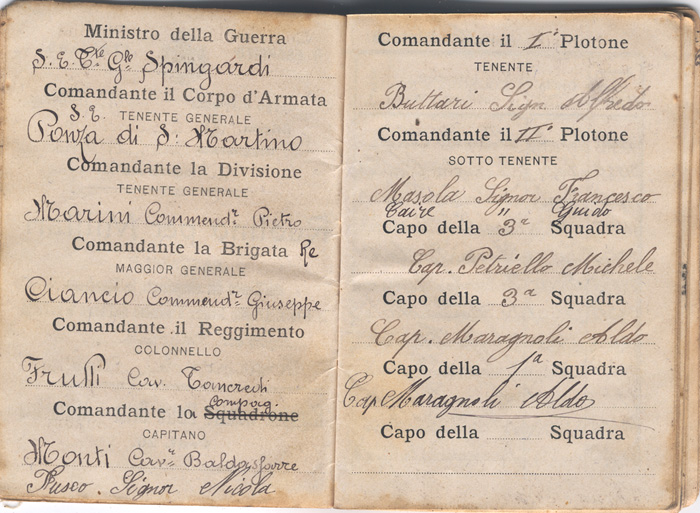 Ministro della Guerra
S. E. Tte Gle Spingardi
Comandante il Corpo d'Armata
S. E. TENENTE GENERALE
Ponza di S. Martino
Comandante la Divisione
TENENTE GENERALE
Marini Commend.r Pietro
Comandante la Brigata Re
MAGGIOR GENERALE
Ciancio Commend.r Giuseppe
Comandante il Reggimento
COLONNELLO
Frutti Cav. Tancredi
compag.
Comandante la Squadrone
CAPITANO
Monti Cav.r Baldassarre
Fusco Signor Nicola
Comandante il I° Plotone
TENENTE
Buttari Sign Alfredo
Comandante il II° Plotone
SOTTO TENENTE
Masola Signor Francesco
Caire " Guido
Capo della 3a Squadra
Cap. Petriello Michele
Capo della 3a Squadra
Cap. Maragnoli Aldo
Capo della 1a Squadra
Cap Maragnoli Aldo
Capo della Squadra